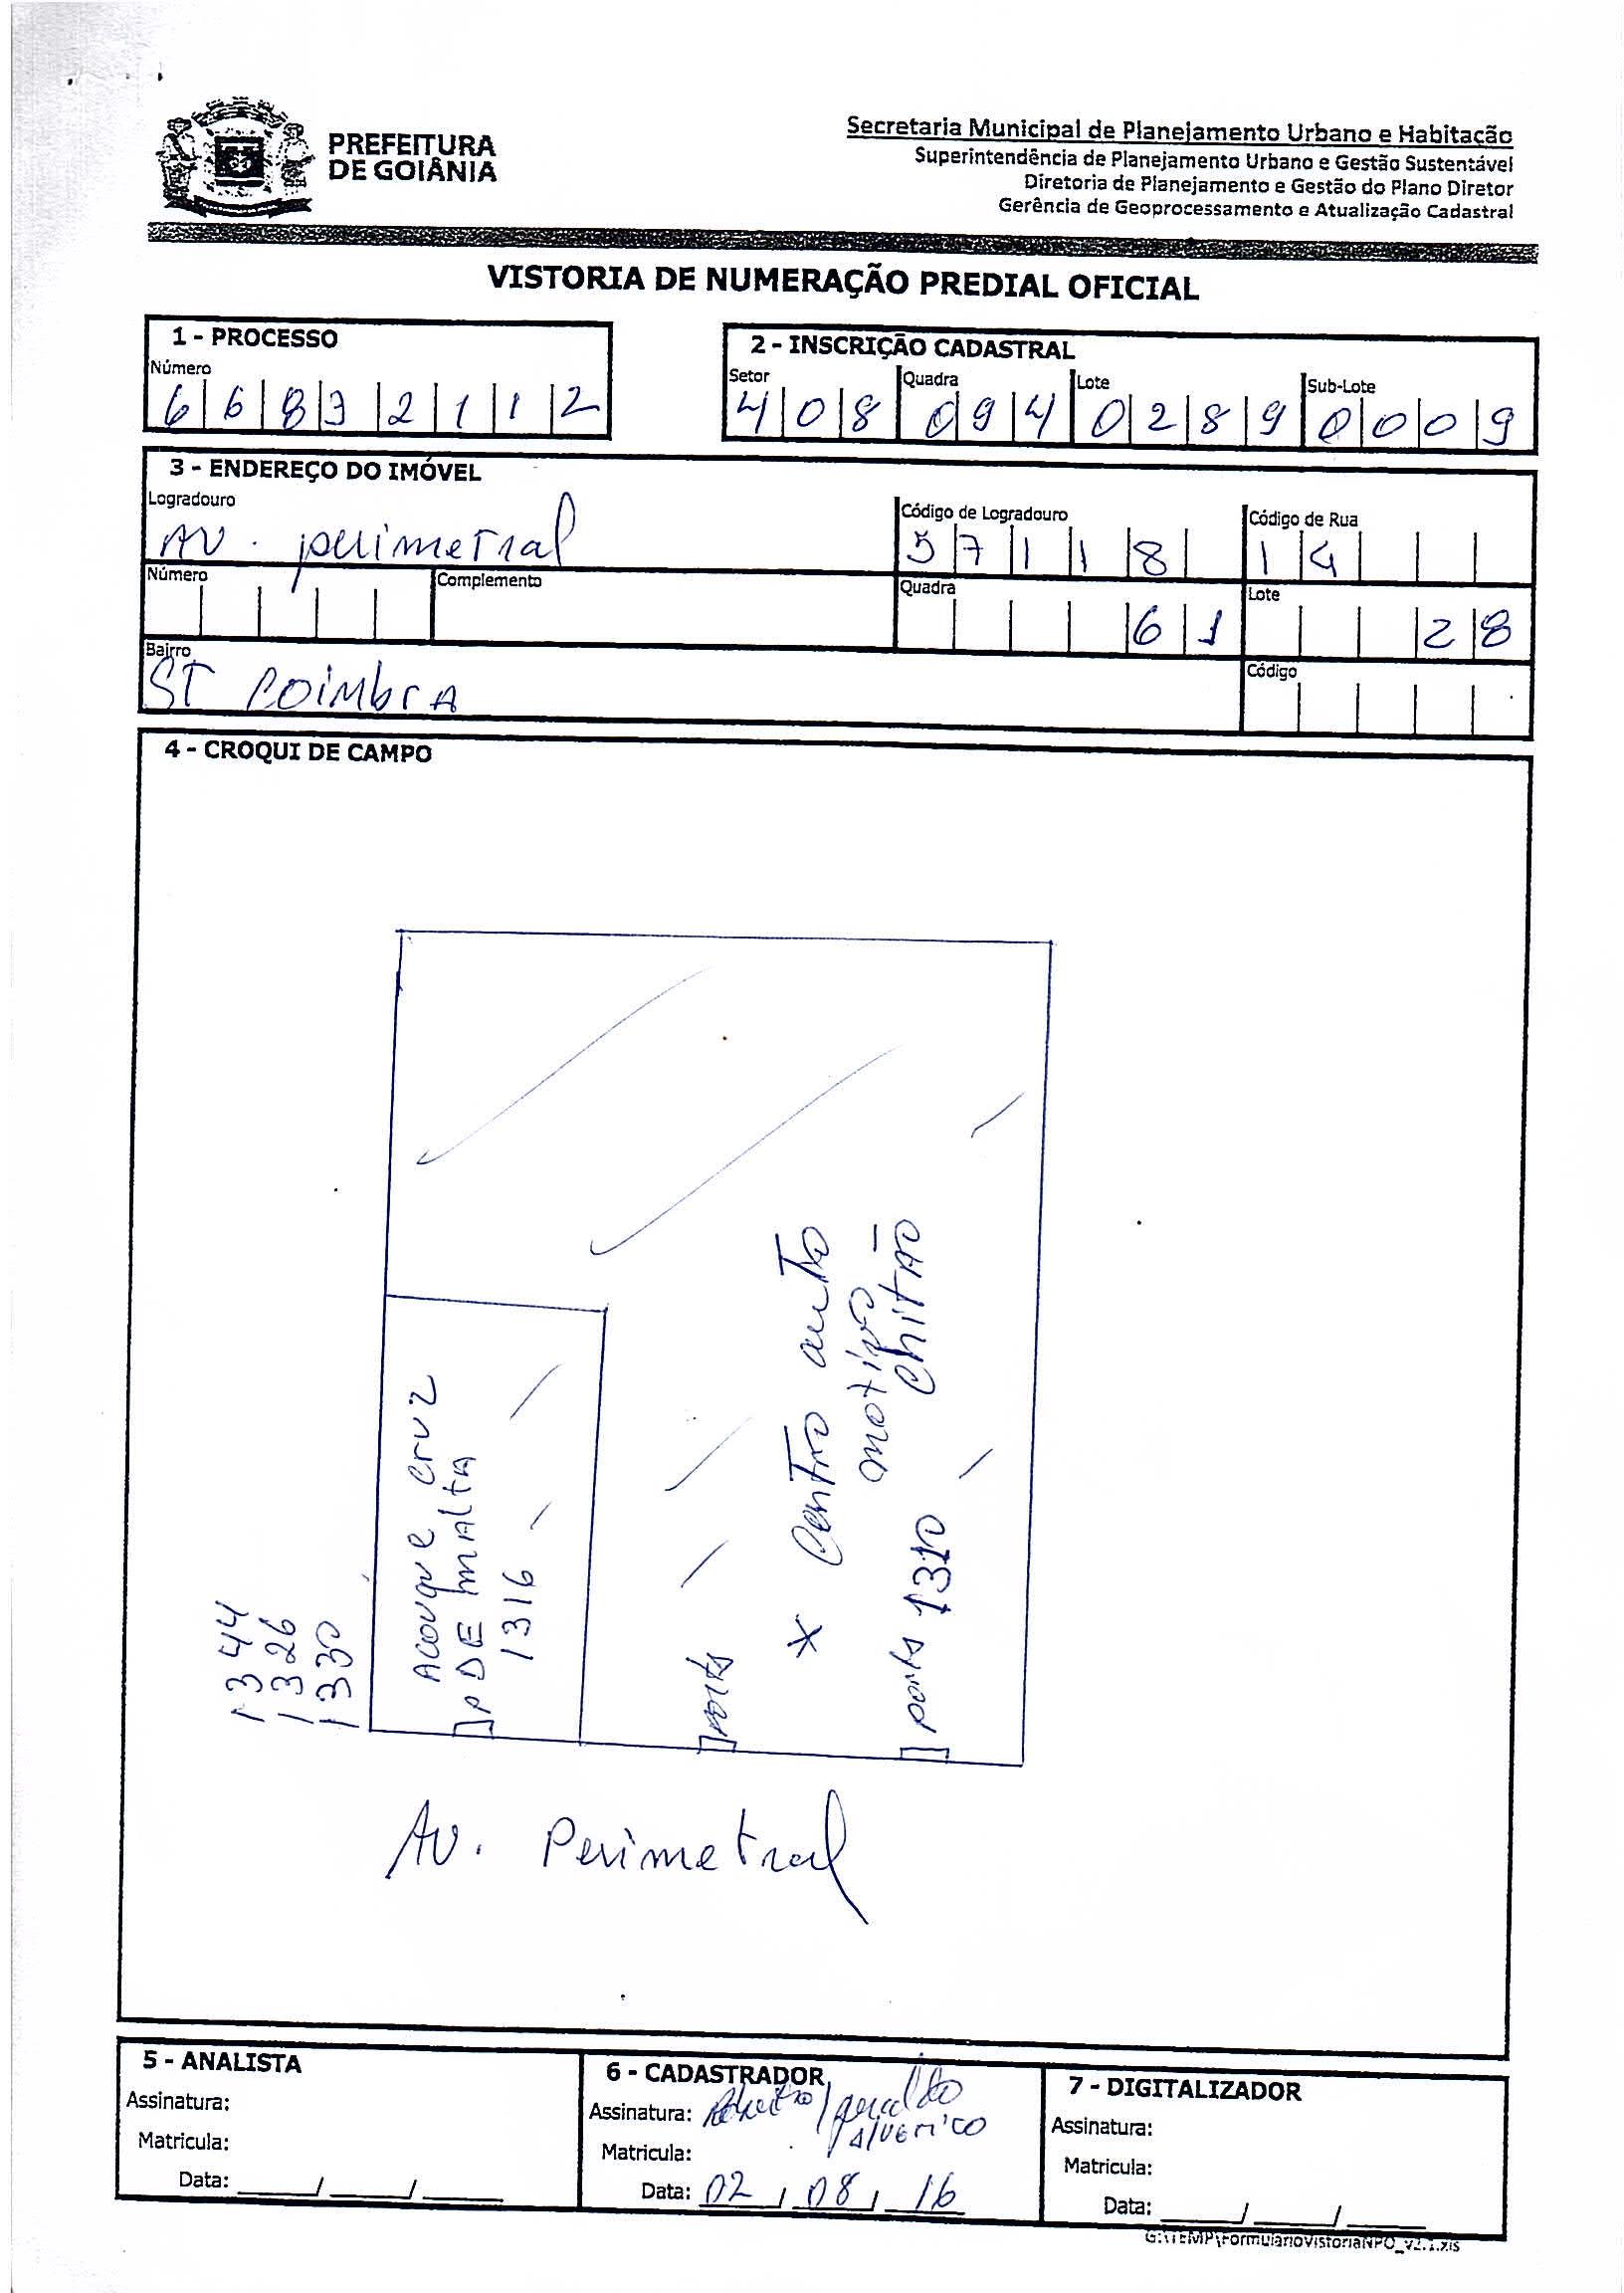 PREFEITURA
DE GOIÂNIA
Secretaria Municipal de Planejamento Urbano e Habitação
Superintendência de Planejamento Urbano e Gestão Sustentável
Diretoria de Planejamento e Gestão do Plano Diretor
Gerência de Geoprocessamento e Atualização Cadastral
VISTORIA DE NUMERAÇÃO PREDIAL OFICIAL
1 - PROCESSO
Número
6 6 8 3 2 1 1 2
2 - INSCRIÇÃO CADASTRAL
Setor Quadra Lote Sub-Lote
4 0 8 0 9 4 0 2 8 9 0 0 0 9
3 - ENDEREÇO DO IMÓVEL
Logradouro Código de Logradouro Código de Rua
AV. perimetral 5 7 1 1 8 1 4
Número Complemento Quadra Lote
6 1 2 8
Bairro Código
ST coimbrA
4 - CROQUI DE CAMPO
1344
1326
1330
Acougue cruz
DE mAltA
1316
porta
* Centro auto
motivo
porta 1310 chitão
Av. Perimetral
5 - ANALISTA
Assinatura:
Matricula:
Data: ____/____/____
6 - CADASTRADOR
Assinatura: geraldo
Alverico
Matricula:
Data: 02/08/16
7 - DIGITALIZADOR
Assinatura:
Matricula:
Data: ____/____/____
G:\TEMP\FormularioVistoriaNPO_v2.1.xls